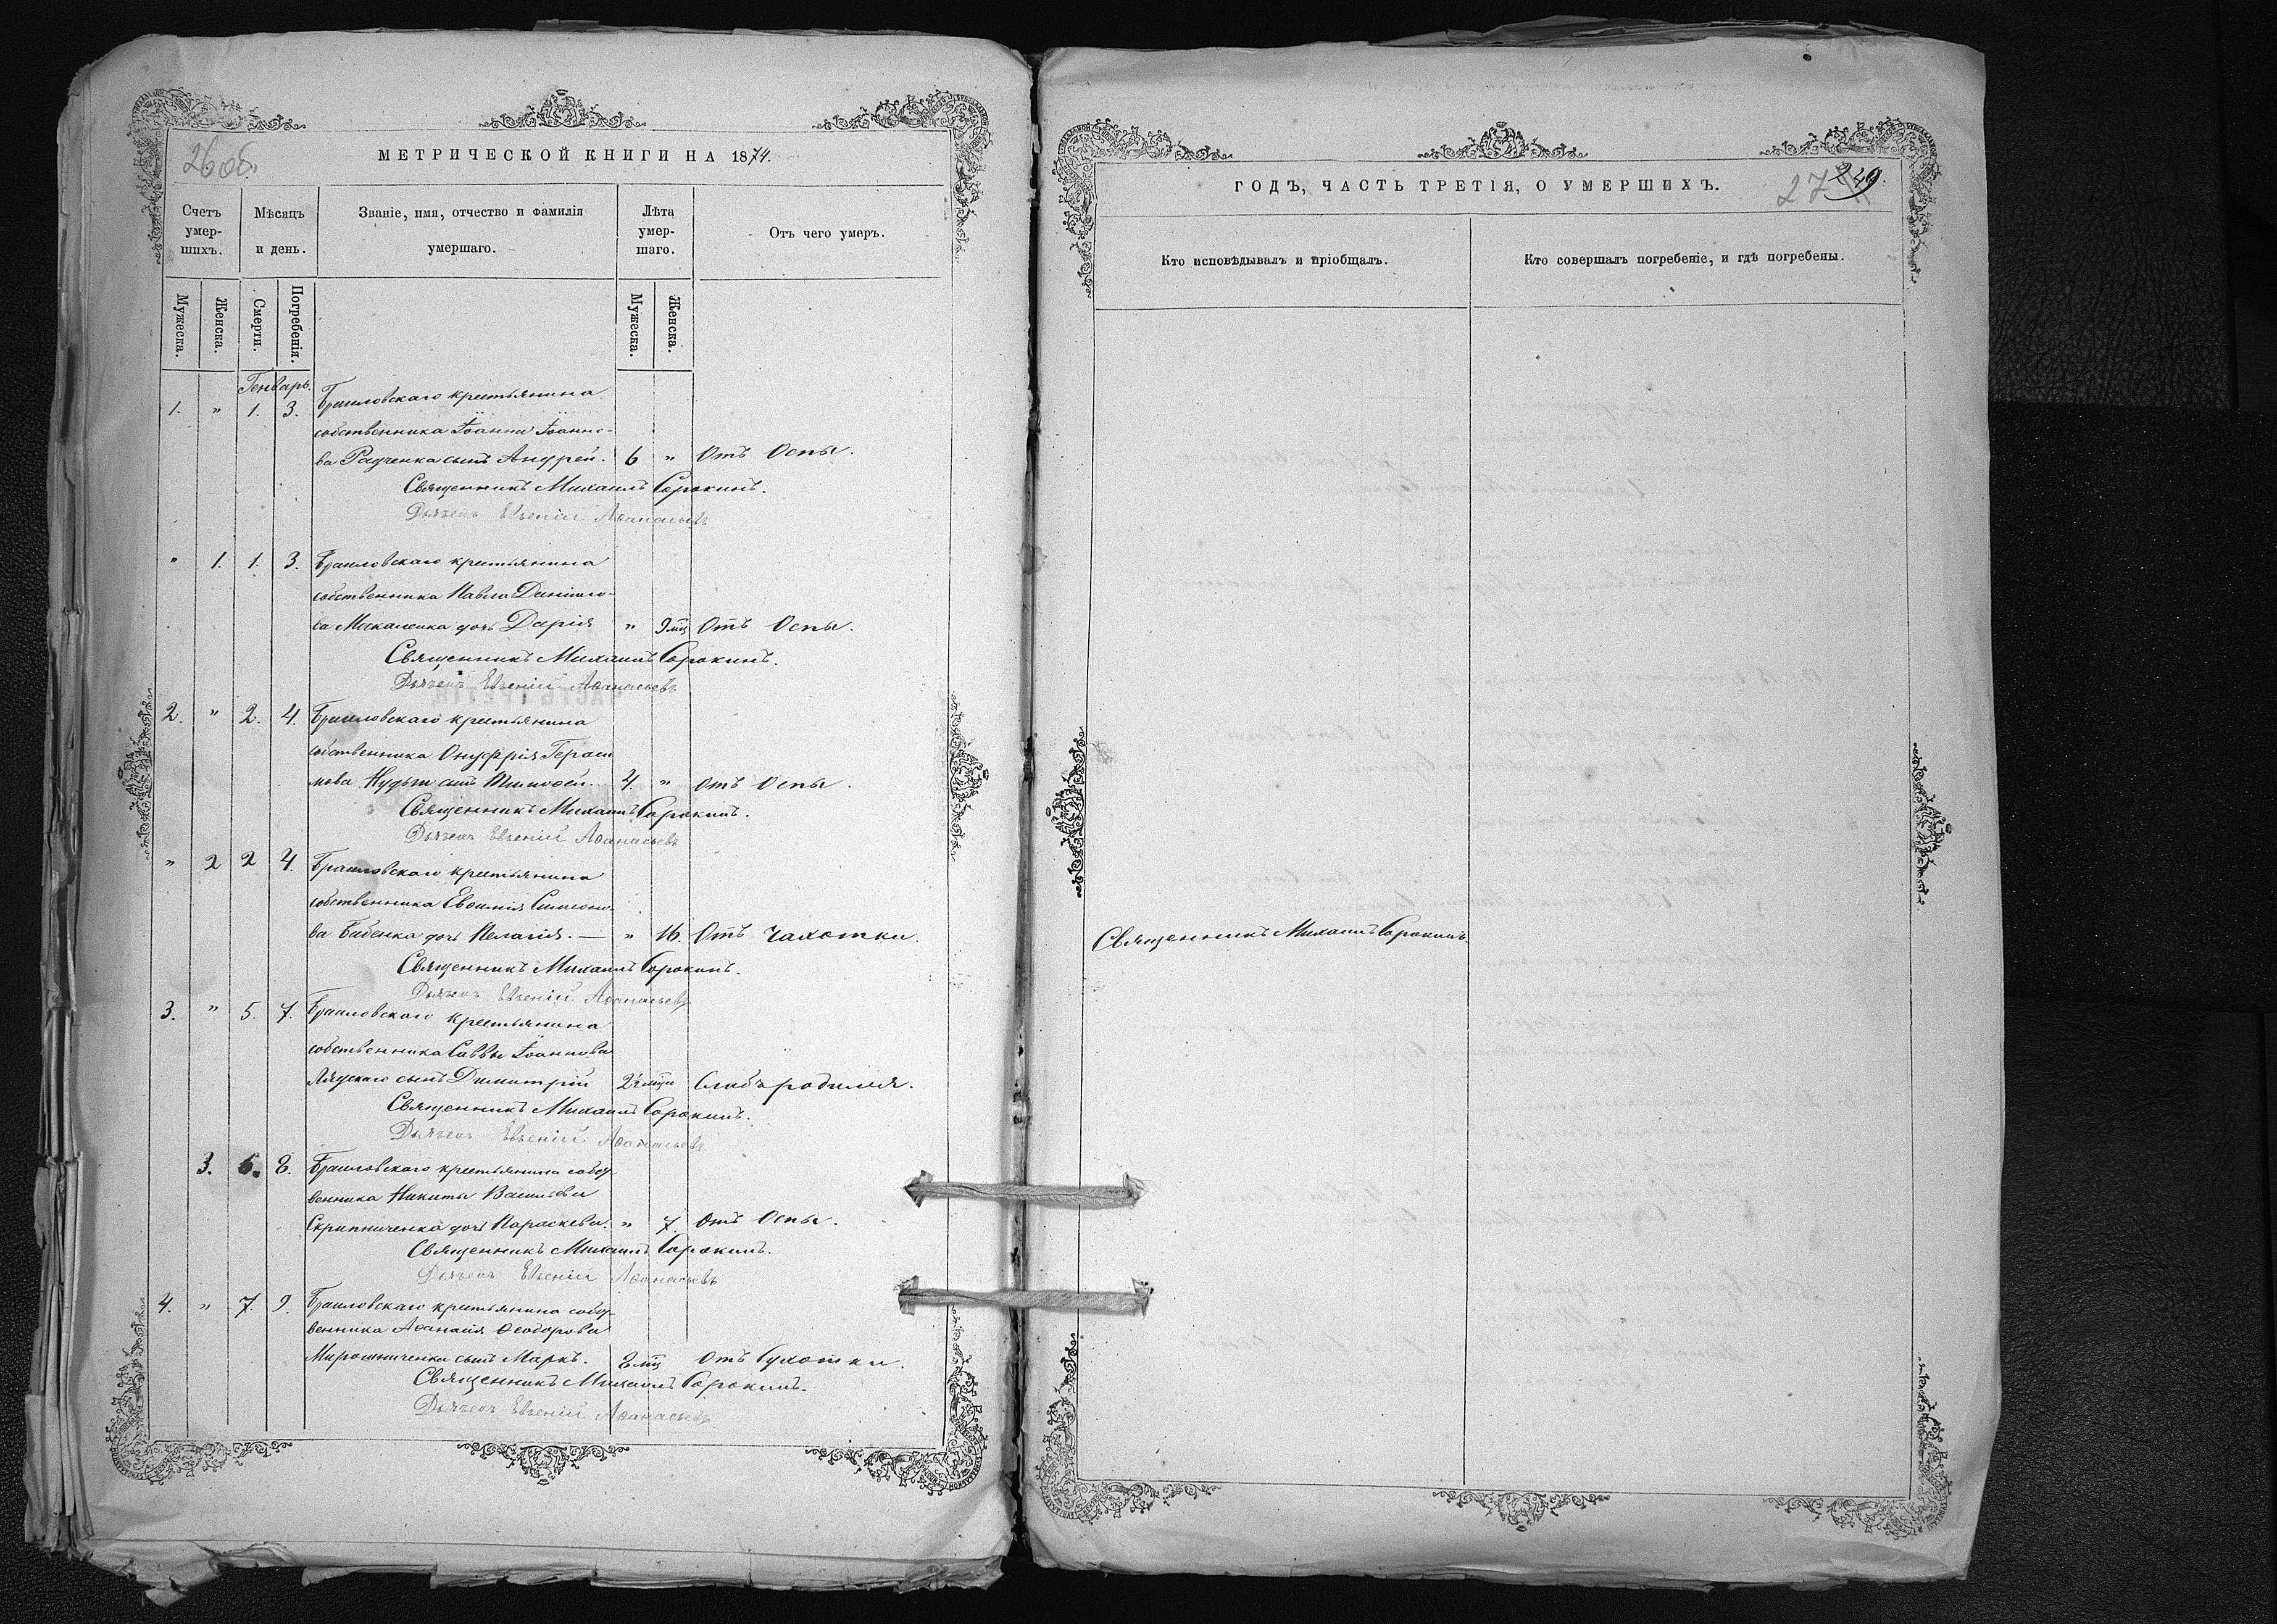 26 об.
МЕТРИЧЕСКОЙ КНИГИ НА 1874.
Счетъ умер-шихъ.
Мѣсяцъ и день.
Званіе, имя, отчество и фамилія умершаго.
Лѣта умер-шаго.
Отъ чего умеръ.
Мужеска.
Женска.
Смерти.
Погребенія.
Мужеска.
Женска.
Генварь.
1. " 1. 3. Браиловскаго крестьянина
собственника Іоанна Іоанно-
ва Радченка сынъ Андрей. 6 " Отъ Оспы.
Священникъ Михаилъ Сорокинъ.
Дьячекъ Евгеній Аѳанасьевъ
" 1. 1. 3. Браиловскаго крестьянина
собственника Павла Даніило-
ва Макаленка дочь Дарія " 9 мц Отъ Оспы.
Священникъ Михаилъ Сорокинъ.
Дьячекъ Евгеній Аѳанасьевъ
2. " 2. 4. Браиловскаго крестьянина
собственника Онуфрія Гераси
мова сынъ Тимоѳей. 4. " Отъ Оспы.
Священникъ Михаилъ Сорокинъ.
Дьячекъ Евгеній Аѳанасьевъ
" 2 2 4. Браиловскаго крестьянина
собственника Евѳимія Симеоно-
ва Бабенка дочь Пелагія. — " 16. Отъ Чахотки.
Священникъ Михаилъ Сорокинъ.
Дьячекъ Евгеній Аѳанасьевъ
3. " 5. 7. Браиловскаго крестьянина
собственника Саввы Іоаннова
Лядскаго сынъ Димитрій Слабъ родился.
Священникъ Михаилъ Сорокинъ.
Дьячекъ Евгеній Аѳанасьевъ
3. 6. 8. Браиловскаго крестьянина собст-
венника Никиты Васильева
Скрипниченка дочь Параскева. " 7. Отъ Оспы.
Священникъ Михаилъ Сорокинъ.
Дьячекъ Евгеній Аѳанасьевъ
4. " 7. 9. Браиловскаго крестьянина собст-
венника Аѳанасія Ѳеодорова
Мирошниченка сынъ Маркъ. 8 мц Отъ Сухотки.
Священникъ Михаилъ Сорокинъ.
Дьячекъ Евгеній Аѳанасьевъ
ГОДЪ, ЧАСТЬ ТРЕТІЯ, О УМЕРШИХЪ.
27 249.
Кто исповѣдывалъ и пріобщалъ.
Кто совершалъ погребеніе, и гдѣ погребены.
Священникъ Михаилъ Сорокинъ.